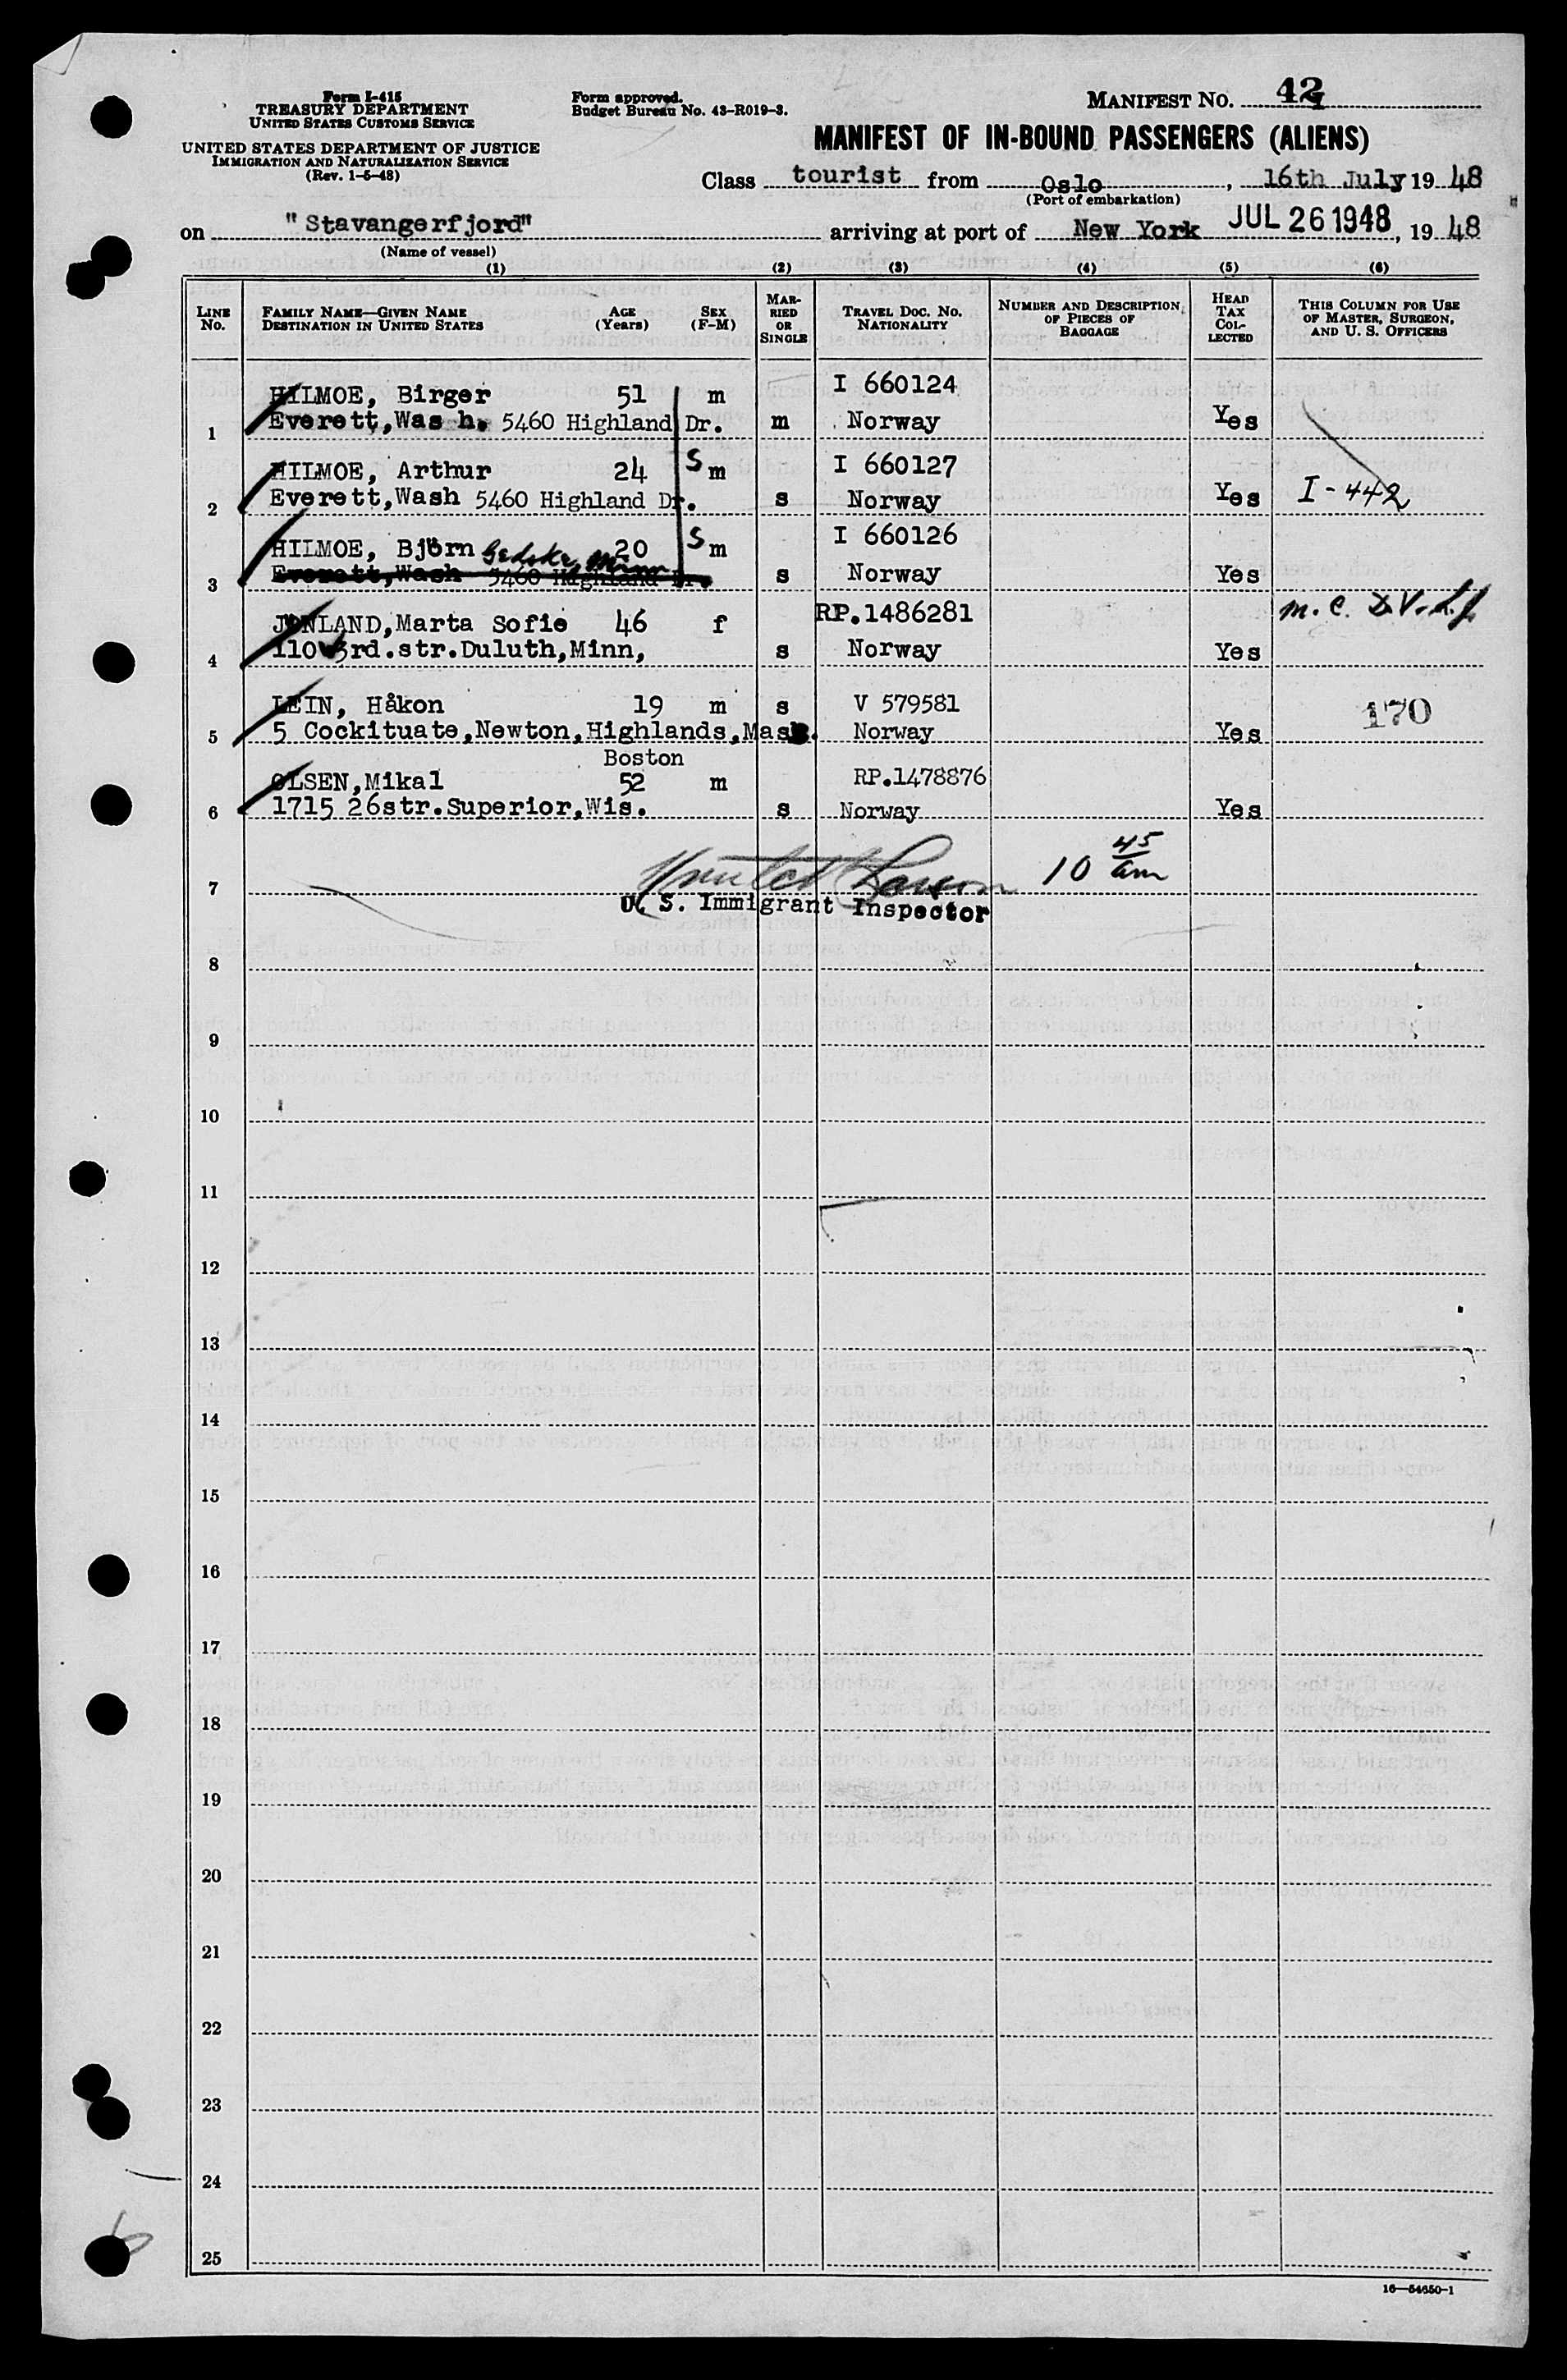 Form I-415
TREASURY DEPARTMENT
UNITED STATES CUSTOMS SERVICE
UNITED STATES DEPARTMENT OF JUSTICE
IMMIGRATION AND NATURALIZATION SERVICE
(Rev. 1-5-48)
Form approved.
Budget Bureau No. 43-R019-3.
MANIFEST NO. 42
MANIFEST OF IN-BOUND PASSENGERS (ALIENS)
Class tourist from Oslo, 16th July 19 48
(Port of embarkation)
on "Stavangerfjord" arriving at port of New York JUL 26 1948, 19 48
(Name of vessel)
(1) (2) (3) (4) (5) (6)
LINE NO. FAMILY NAME—GIVEN NAME DESTINATION IN UNITED STATES AGE (Years) SEX (F-M) MARRIED OR SINGLE TRAVEL DOC. NO. NATIONALITY NUMBER AND DESCRIPTION OF PIECES OF BAGGAGE HEAD TAX COLLECTED THIS COLUMN FOR USE OF MASTER, SURGEON, AND U. S. OFFICERS
HILMOE, Birger 51 m I 660124
1 Everett, Was h. 5460 Highland Dr. m Norway Yes
HILMOE, Arthur 24 S m I 660127
2 Everett, Wash 5460 Highland Dr. s Norway Yes I-442
HILMOE, Björn 20 S m I 660126
Minn
3 Everett, Wash 5460 Highland Dr. s Norway Yes
JONLAND, Marta Sofie 46 f RP.1486281 m.c.
4 110 3rd.str.Duluth, Minn, s Norway Yes
LEIN, Håkon 19 m s V 579581 170
5 5 Cockituate, Newton, Highlands, Mass. Norway Yes
Boston
OLSEN, Mikal 52 m RP.1478876
6 1715 26str.Superior, Wis. s Norway Yes
10 45 am
7
U. S. Immigrant Inspector
8
9
10
11
12
13
14
15
16
17
18
19
20
21
22
23
24
25
16—54650-1